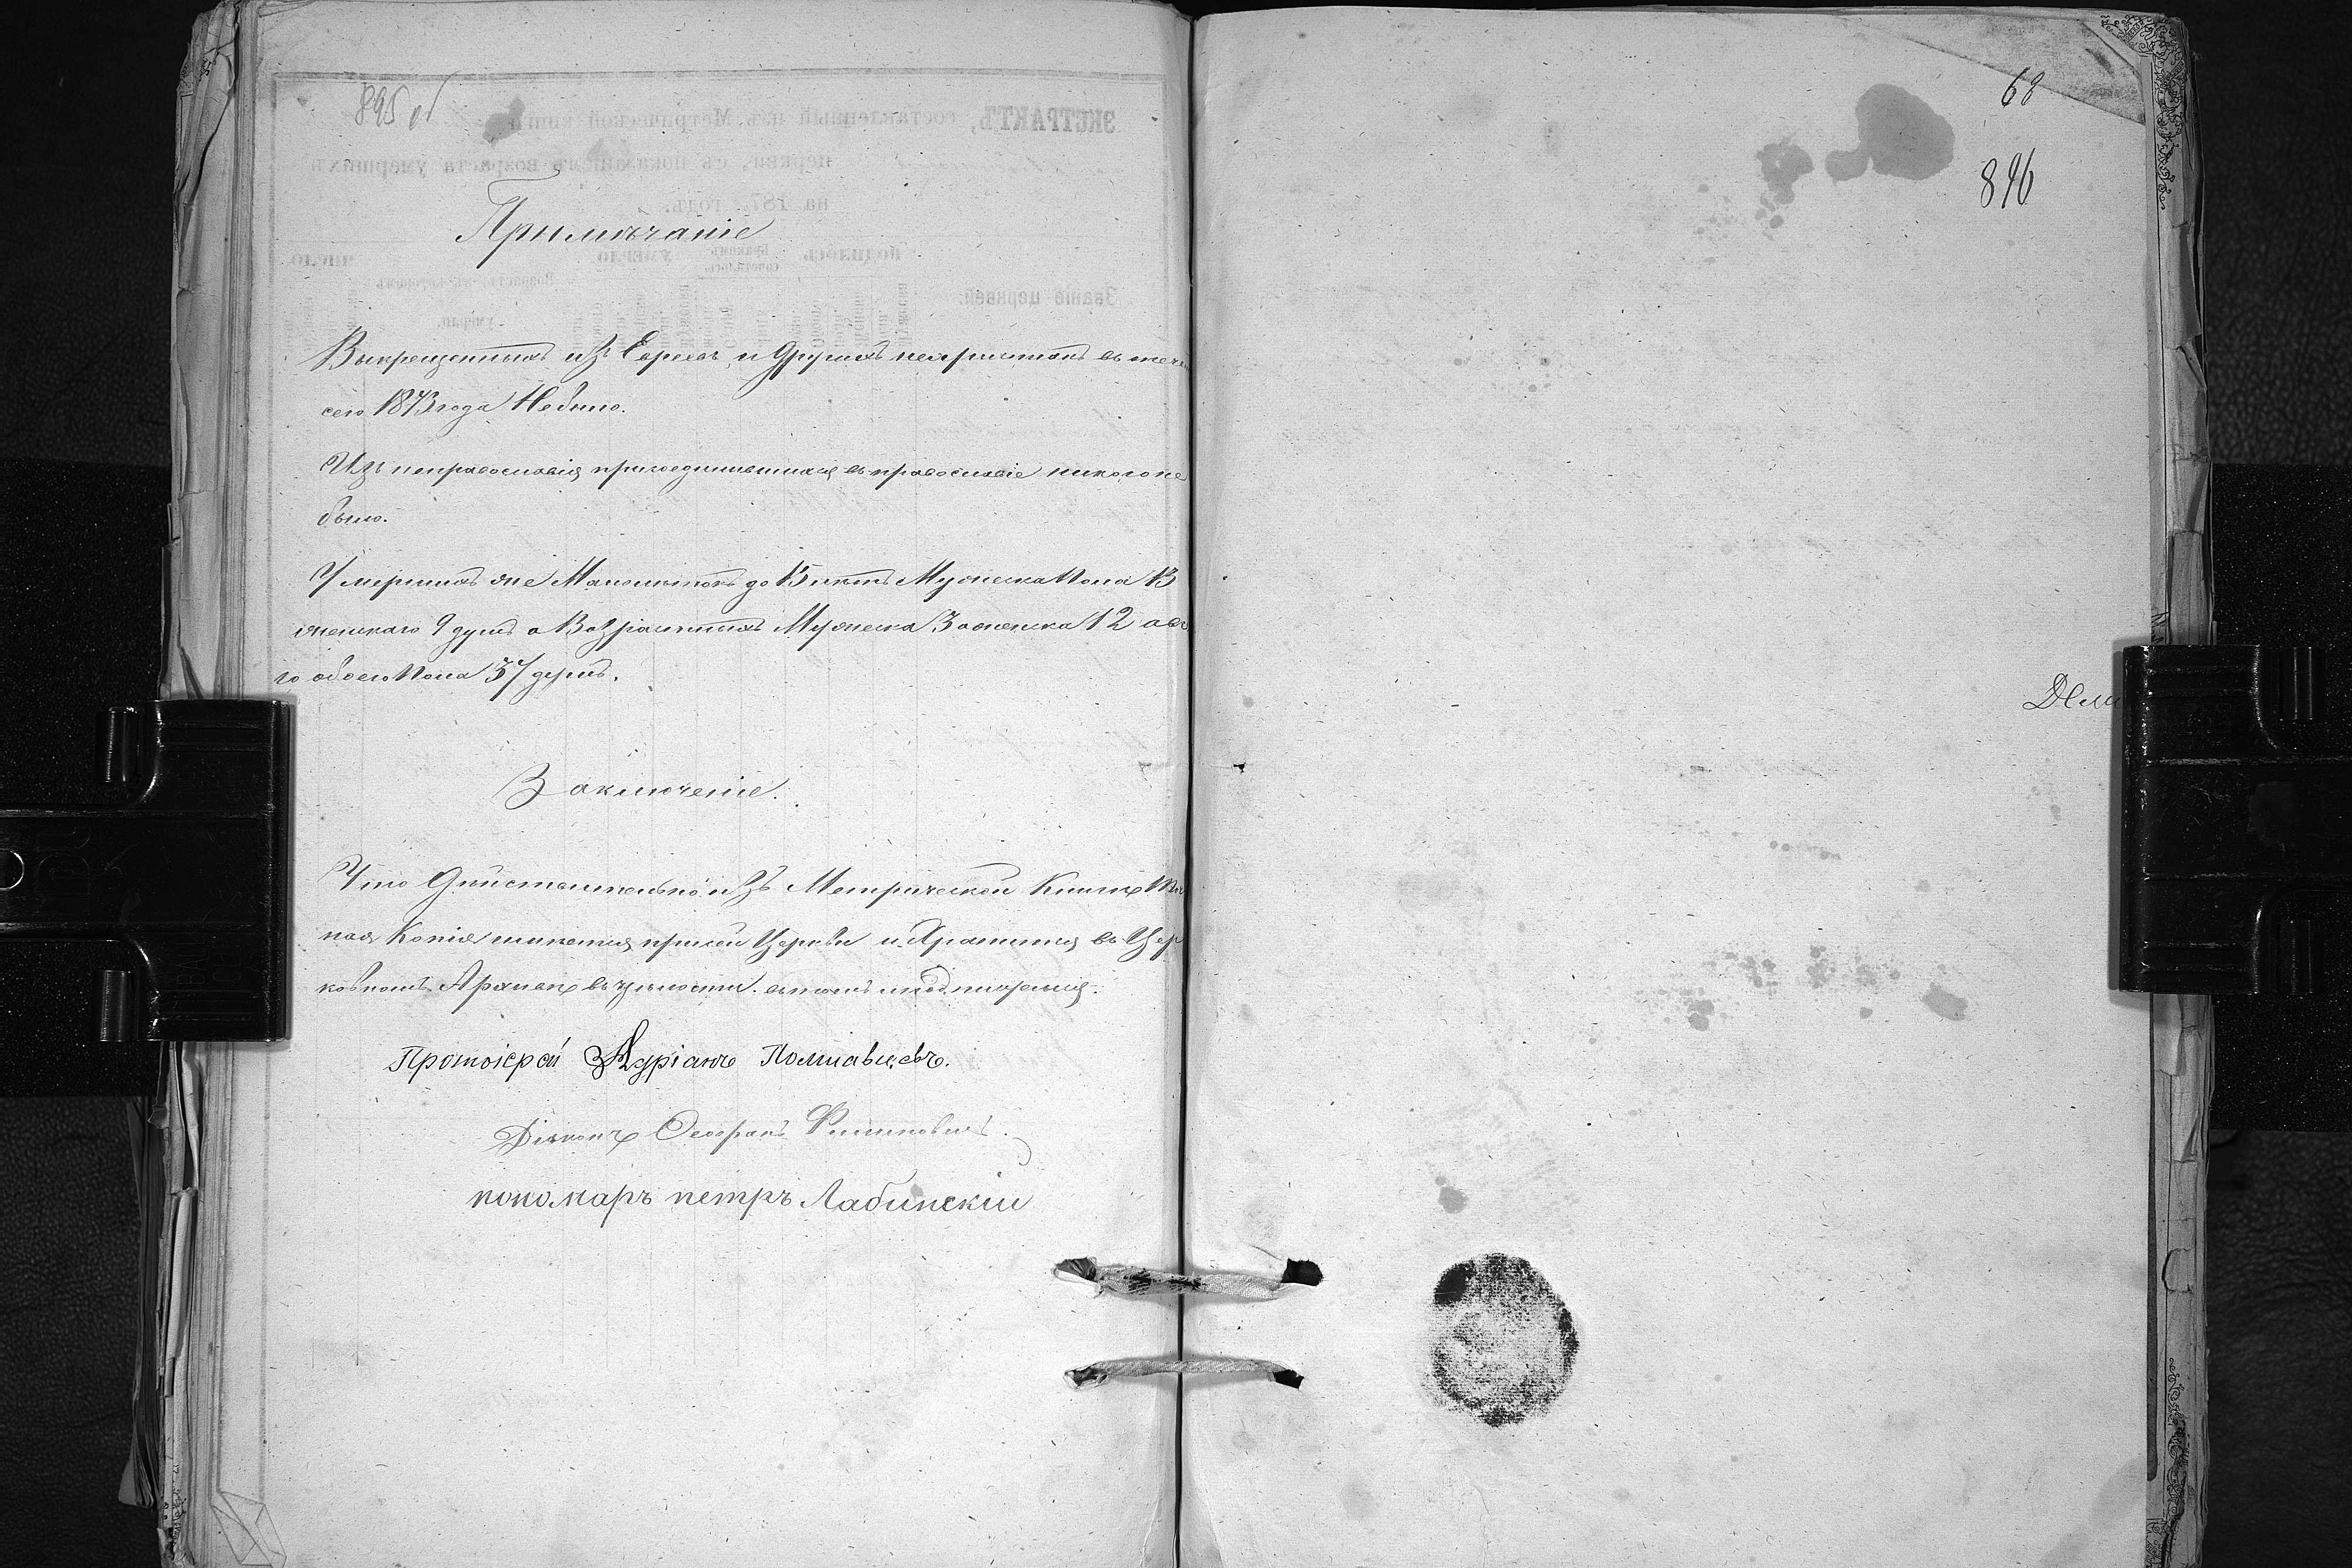 895 об
Примѣчаніе
Выкрещенныхъ изъ Евреевъ и другихъ нехристіянъ въ тече
сего 1873 года Небыло.
Изъ неправославія присоединившихся въ православіе никого не
было.
Умершихъ же Малолѣтокъ до 15 лѣтъ Мужеска Пола 13
женскаго 9 душъ а Возрастныхъ Мужеска 3 аженска 12 авсе
го обоего Пола 37 душъ.
Заключеніе.
Что Дѣйствительно изъ Метрической Книги
ная Копія имѣется присей Церкви и Хранится въ Цер
ковномъ Архивѣ въ цѣлости. въ томъ иподписуемся.
Протоіерей Адріанъ Полтавцевъ.
Діяконъ Филиповичъ.
пономарь петръ Лабинскій
68
896